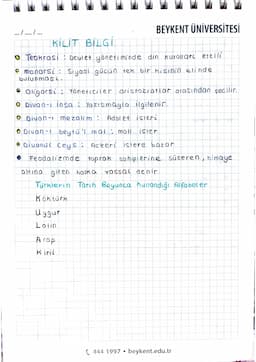 BEYKENT ÜNİVERSİTESİ
__/__/__
KİLİT BİLGİ
Teokrasi : Devlet yönetiminde din kuralları etkili
monarşi : Siyasi gücün tek bir kişinin elinde
bulunması.
Oligarşi : Yöneticiler aristokratlar arasından seçilir.
Divan-ı İnşa : Yazışmayla ilgilenir.
Divan-ı mezalim : Adalet işleri
Divan-ı beytü'l mal : mali işler
Divanül ceyş : Askeri işlere bakar
Feodalizmde toprak sahiplerine süzeren, himaye
altına giren halka vassal denir.
Türklerin Tarih Boyunca Kullandığı Alfabeler
Köktürk
Uygur
Latin
Arap
Kiril
444 1997 • beykent.edu.tr